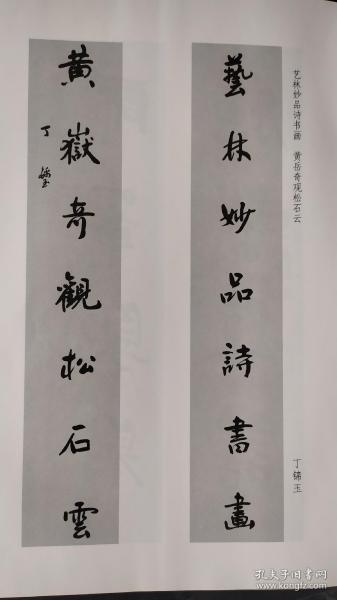 艺林妙品诗书画 黄岳奇观松石云
丁锦玉
藝林妙品詩書畫
黄嶽奇觀松石雲
丁
孔夫子旧书网